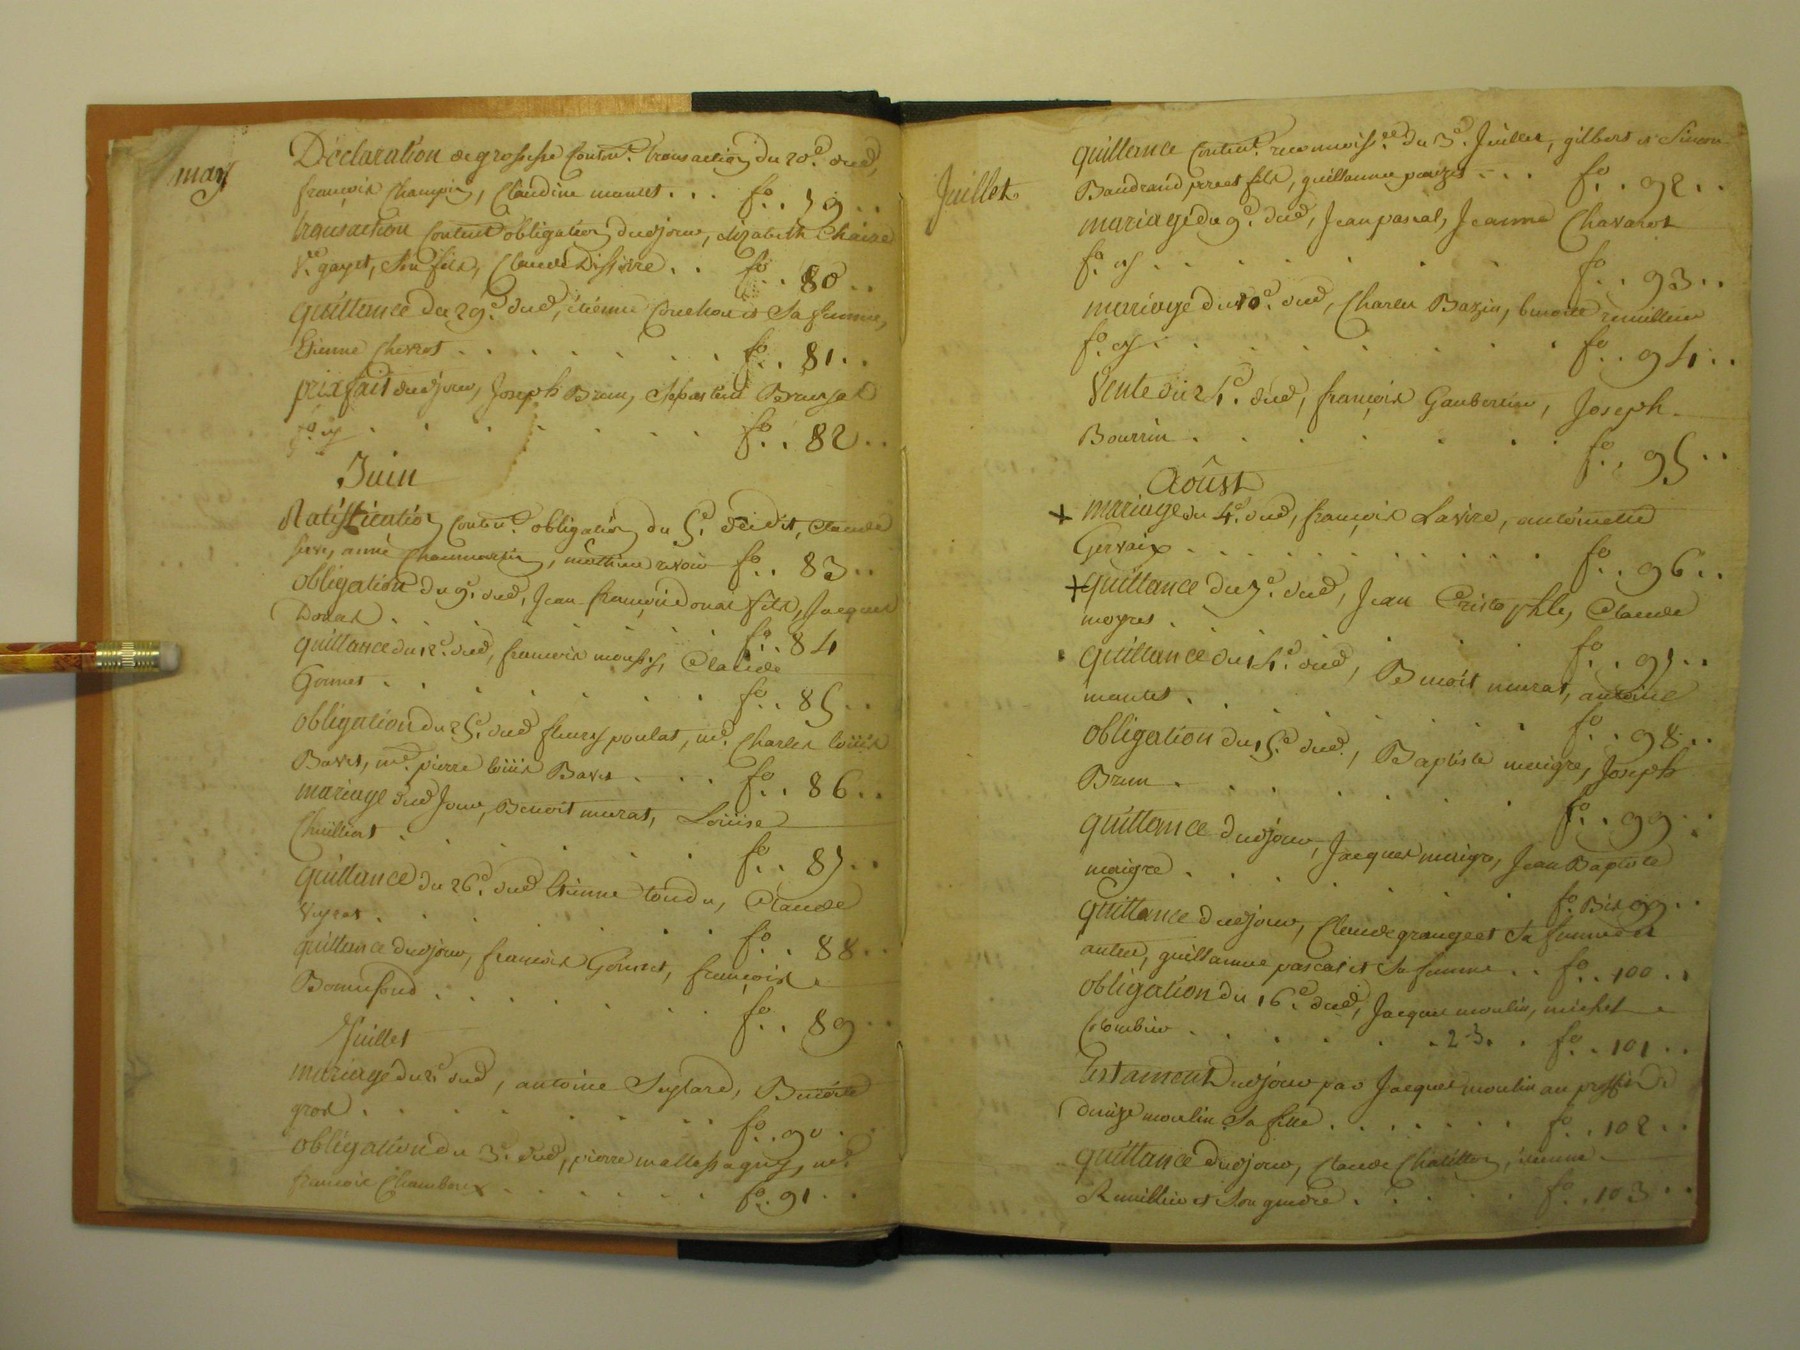 may
Déclaration de grossesse Conten.t transaction du 20.e dud,
françois Champin, Claudine mantet . . . fo. . 79 . .
transaction Content obligation dud jour, elizabeth Chaize
V.e gayet, Son fils, Claude . . fo. . 80 . .
quittance du 29.e dud, étienne et Sa femme,
Etienne Chevrot . . . . . . . fo. . 81 . .
prixfait dud jour, Joseph Brun,
fo. . 82 . .
Juin
Ratiffication Conten.t obligation du 5.e dudit, Claude
anné Chaumartin, fo. . 83 . .
obligation du 9.e dud, Jean françois Donat fils, Jacques
Donat . . . . . . fo. . 84
quittance du 12.e dud, françois Claude
Gonnet . . . . . . fo. . 85 . .
obligation du 25.e dud fleury poulat, md. Charles loüis
Bavet, md. pierre loüis Bavet . . . . fo. . 86 . .
mariage dud Jour, Benoit murat, Loüise
. . . . . . fo. . 87 . .
quittance du 26.e dud Etienne tondu, Claude
Veyret . . . . . . fo. . 88 . .
quittance dud jour, françois Gonnet, françois
Bonnefond . . . . . . fo. . 89 . .
Juillet
mariage du 2.e dud, antoine Benoite
gros . . . . . . . fo. . 90 . .
obligation du 3.e dud, pierre md.
françois . . . . . . fo. 91 . .
Juillet
quittance Conten.t reconnoiss.ce du 3.e Juillet, gilbert et Simon
Baudrand pere et fils, guillaume . . . fo. . 92 . .
mariage du 9.e dud, Jean pascal, Jeanne Chavanet
fo. . 93 . .
mariage du 10.e dud, Charles Bazin, benoite
fo. . 94 . .
Vente du 24.e dud, françois Joseph
Bourrin . . . . . . fo. . 95 . .
Aôust
+ mariage du 4.e dud, françois Lavire, antoinette
Gervaix . . . . . . . . . . . . fo. . 96 . .
+ quittance du 7.e dud, Jean Cristophle, Claude
. . . . . . fo. . 97 . .
quittance du 14.e dud, Benoit murat, antoine
mantet . . . . . . fo. . 98 . .
obligation du 15.e dud, Baptiste maigre, Joseph
Brun . . . . . . fo. . 99 . .
quittance dud jour, Jacques maigre, Jean Baptiste
maigre . . . . . . fo. Bis 99 . .
quittance dud jour, Claude grange et Sa femme et
autre, guillaume pascal et Sa femme . . fo. . 100 . .
obligation du 16.e dud, Jacques moulin, michel
Colombier . . . . . . . 23. . fo. . 101 . .
testament dud jour par Jacques moulin au proffit de
denize moulin Sa fille . . . . . . . fo. . 102 . .
quittance dud jour, Claude Chatillon, étienne
et Son gendre . . . . . fo. . 103 . .